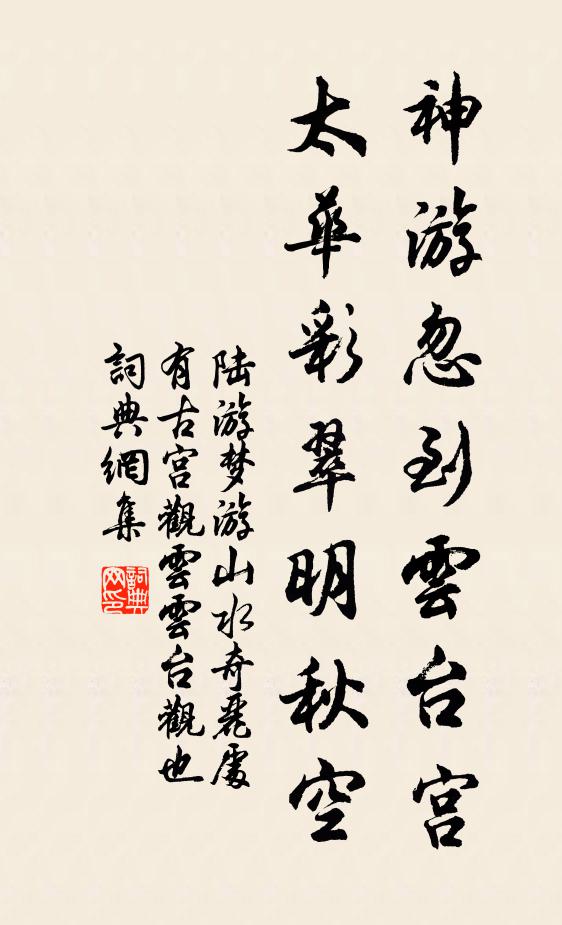 神游忽到雲台宫
太華彩翠明秋空
陆游梦游山水奇麗處
有古宫觀雲雲台觀也
詞典網集
詞典網印